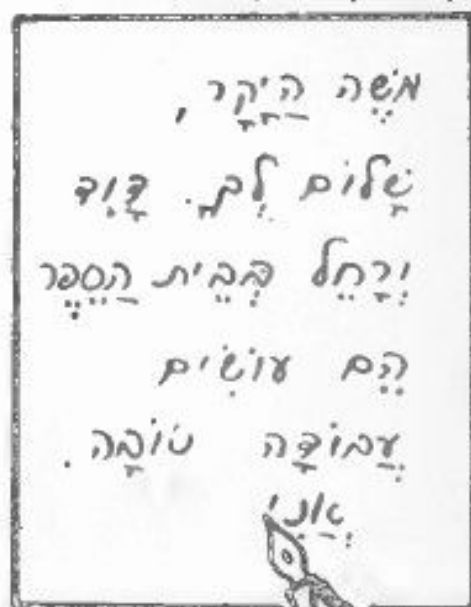 מֹשֶׁה הַיָּקָר ,
שָׁלוֹם לְךָ. דָּוִד
וְרָחֵל בְּבֵית הַסֵּפֶר
הֵם עוֹשִׂים
עֲבוֹדָה טוֹבָה .
אֲנִי